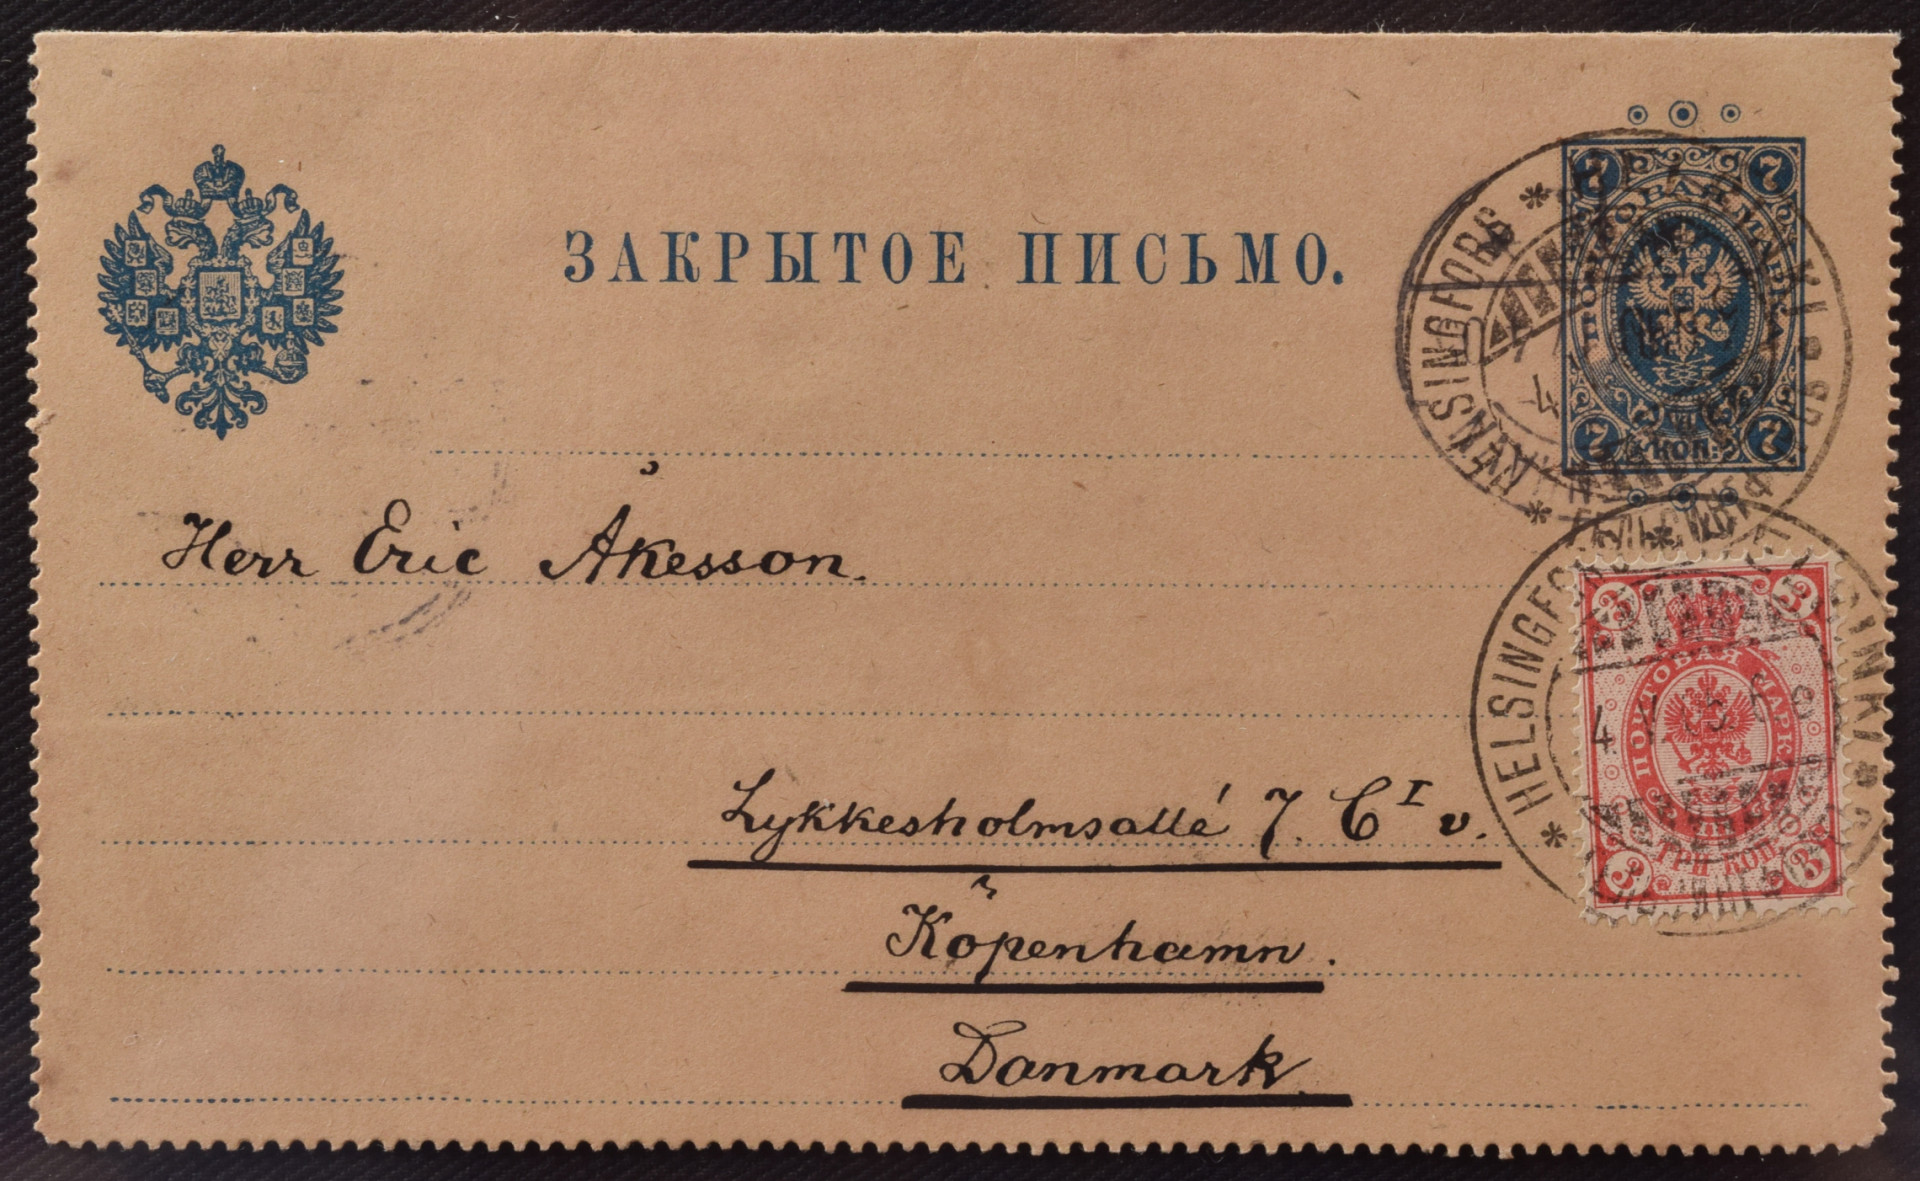 ЗАКРЫТОЕ ПИСЬМО.
7 7
ПОЧТОВАЯ МАРКА
7 КОП. 7
HELSINGFORS
Herr Eric Åkesson.
HELSINGFORS
3 3
ПОЧТОВАЯ МАРКА
ТРИ КОП.
3 3
Lykkesholmsallé 7. C I v.
Köpenhamn.
Danmark.